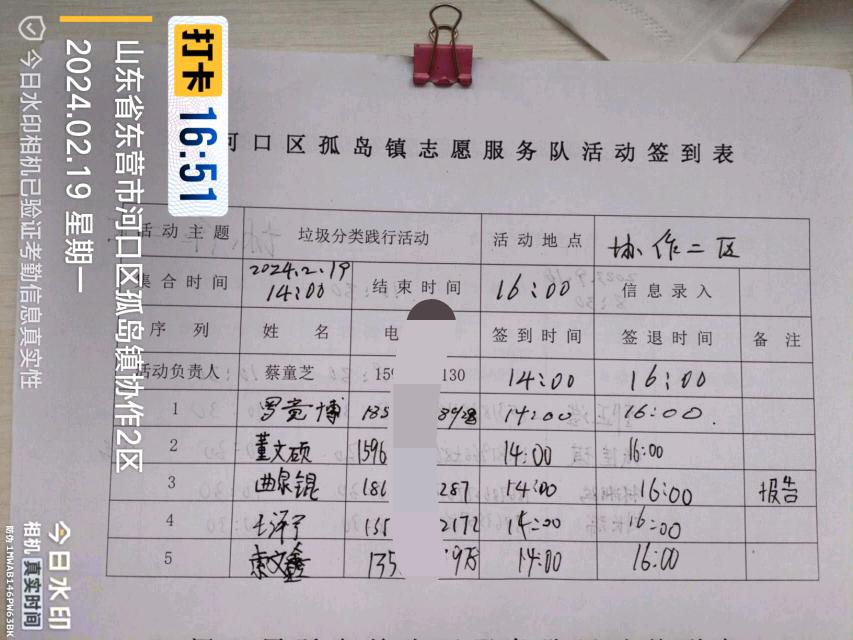 河口区孤岛镇志愿服务队活动签到表
活动主题 垃圾分类践行活动 活动地点 协作二区
集合时间 2024.2.19 14:00 结束时间 16:00 信息录入
序列 姓名 电 签到时间 签退时间 备注
活动负责人 蔡童芝 159 130 14:00 16:00
1 罗贵博 185 8928 14:00 16:00.
2 董文硕 1596 14:00 16:00
3 曲泉锟 186 287 14:00 16:00 报告
4 135 2172 14:00 16:00
5 135 14:00 16:00
打卡 16:51
山东省东营市河口区孤岛镇协作2区
2024.02.19 星期一
今日水印相机已验证考勤信息真实性
今日水印
相机 真实时间
防伪 1MWAB146PW63BK